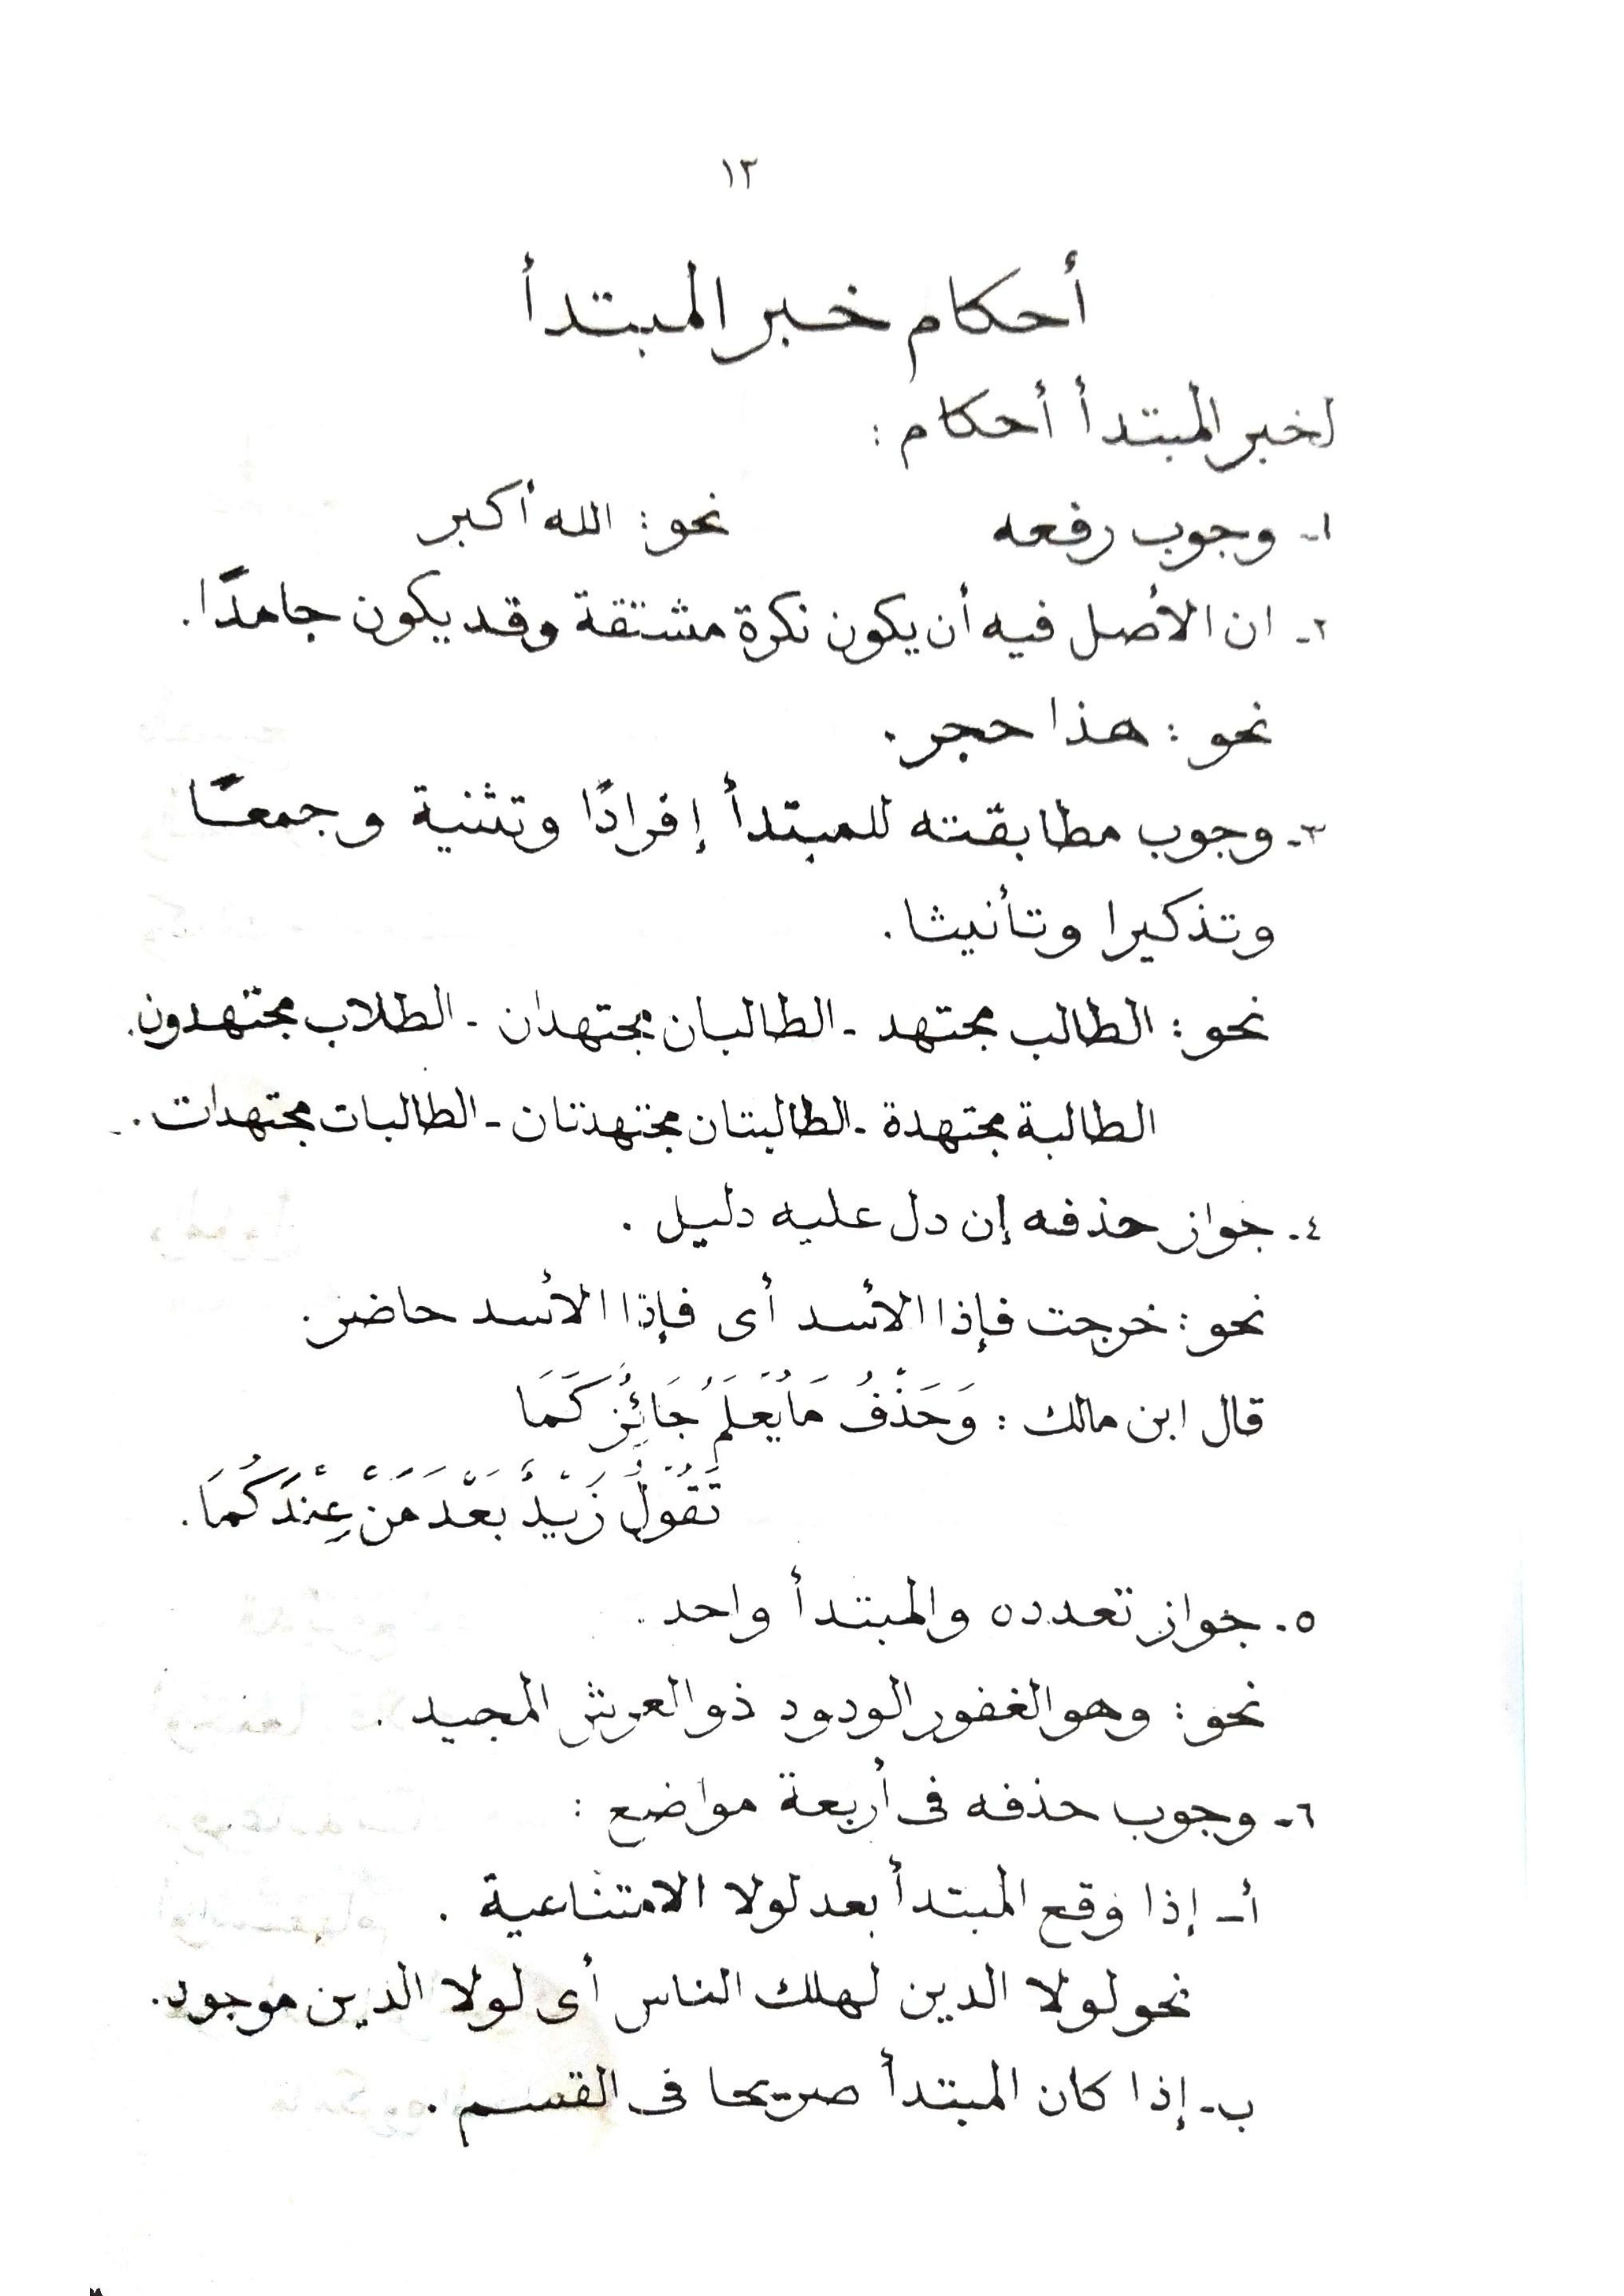 ١٢
أحكام خبر المبتدأ
لخبر المبتدأ أحكام :
١- وجوب رفعه نحو : الله أكبر
٢- ان الأصل فيه أن يكون نكرة مشتقة وقد يكون جامدًا .
نحو : هذا حجر .
٣- وجوب مطابقته للمبتدأ إفرادًا وتثنية وجمعًا
وتذكيرا وتأنيثا .
نحو : الطالب مجتهد - الطالبان مجتهدان - الطلاب مجتهدون .
الطالبة مجتهدة - الطالبتان مجتهدتان - الطالبات مجتهدات .
٤- جواز حذفه إن دل عليه دليل .
نحو : خرجت فإذا الأسد أى فإذا الأسد حاضر .
قال ابن مالك : وَحَذْفُ مَا يُعْلَمُ جَائِزٌ كَمَا
تَقُولُ زَيْدٌ بَعْدَ مَنْ عِنْدَكُمَا .
٥- جواز تعدده والمبتدأ واحد .
نحو : وهو الغفور الودود ذو العرش المجيد .
٦- وجوب حذفه فى أربعة مواضع :
أ- إذا وقع المبتدأ بعد لولا الامتناعية .
نحو لولا الدين لهلك الناس أى لولا الدين موجود .
ب- إذا كان المبتدأ صريحا فى القسم .